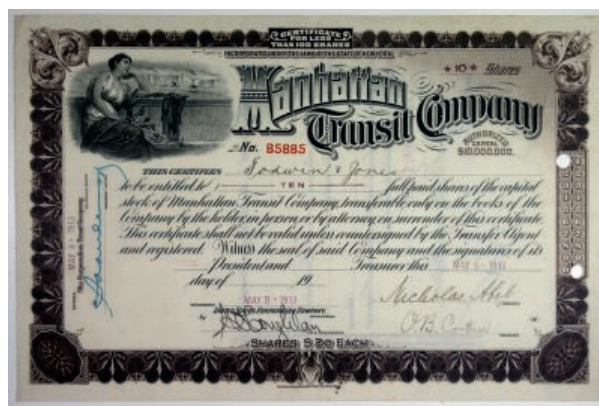 CERTIFICATE
FOR LESS
THAN 100 SHARES
INCORPORATED UNDER THE LAWS OF THE STATE OF NEW YORK
* 10 * Shares
Manhattan
Transit Company
No. B5885
AUTHORIZED
CAPITAL
$10,000,000.
THIS CERTIFIES Godwin & Jones
to be entitled to TEN full paid shares of the capital
stock of Manhattan Transit Company, transferable only on the books of the
Company by the holder, in person or by attorney, on surrender of this certificate.
This certificate shall not be valid unless countersigned by the Transfer Agent
and registered. Witness the seal of said Company and the signatures of its
President and Treasurer this MAY 8 - 1913
day of 19
MAY 8 - 1913
Nicholas Abel
SHARES $20 EACH
MAY 8 - 1913